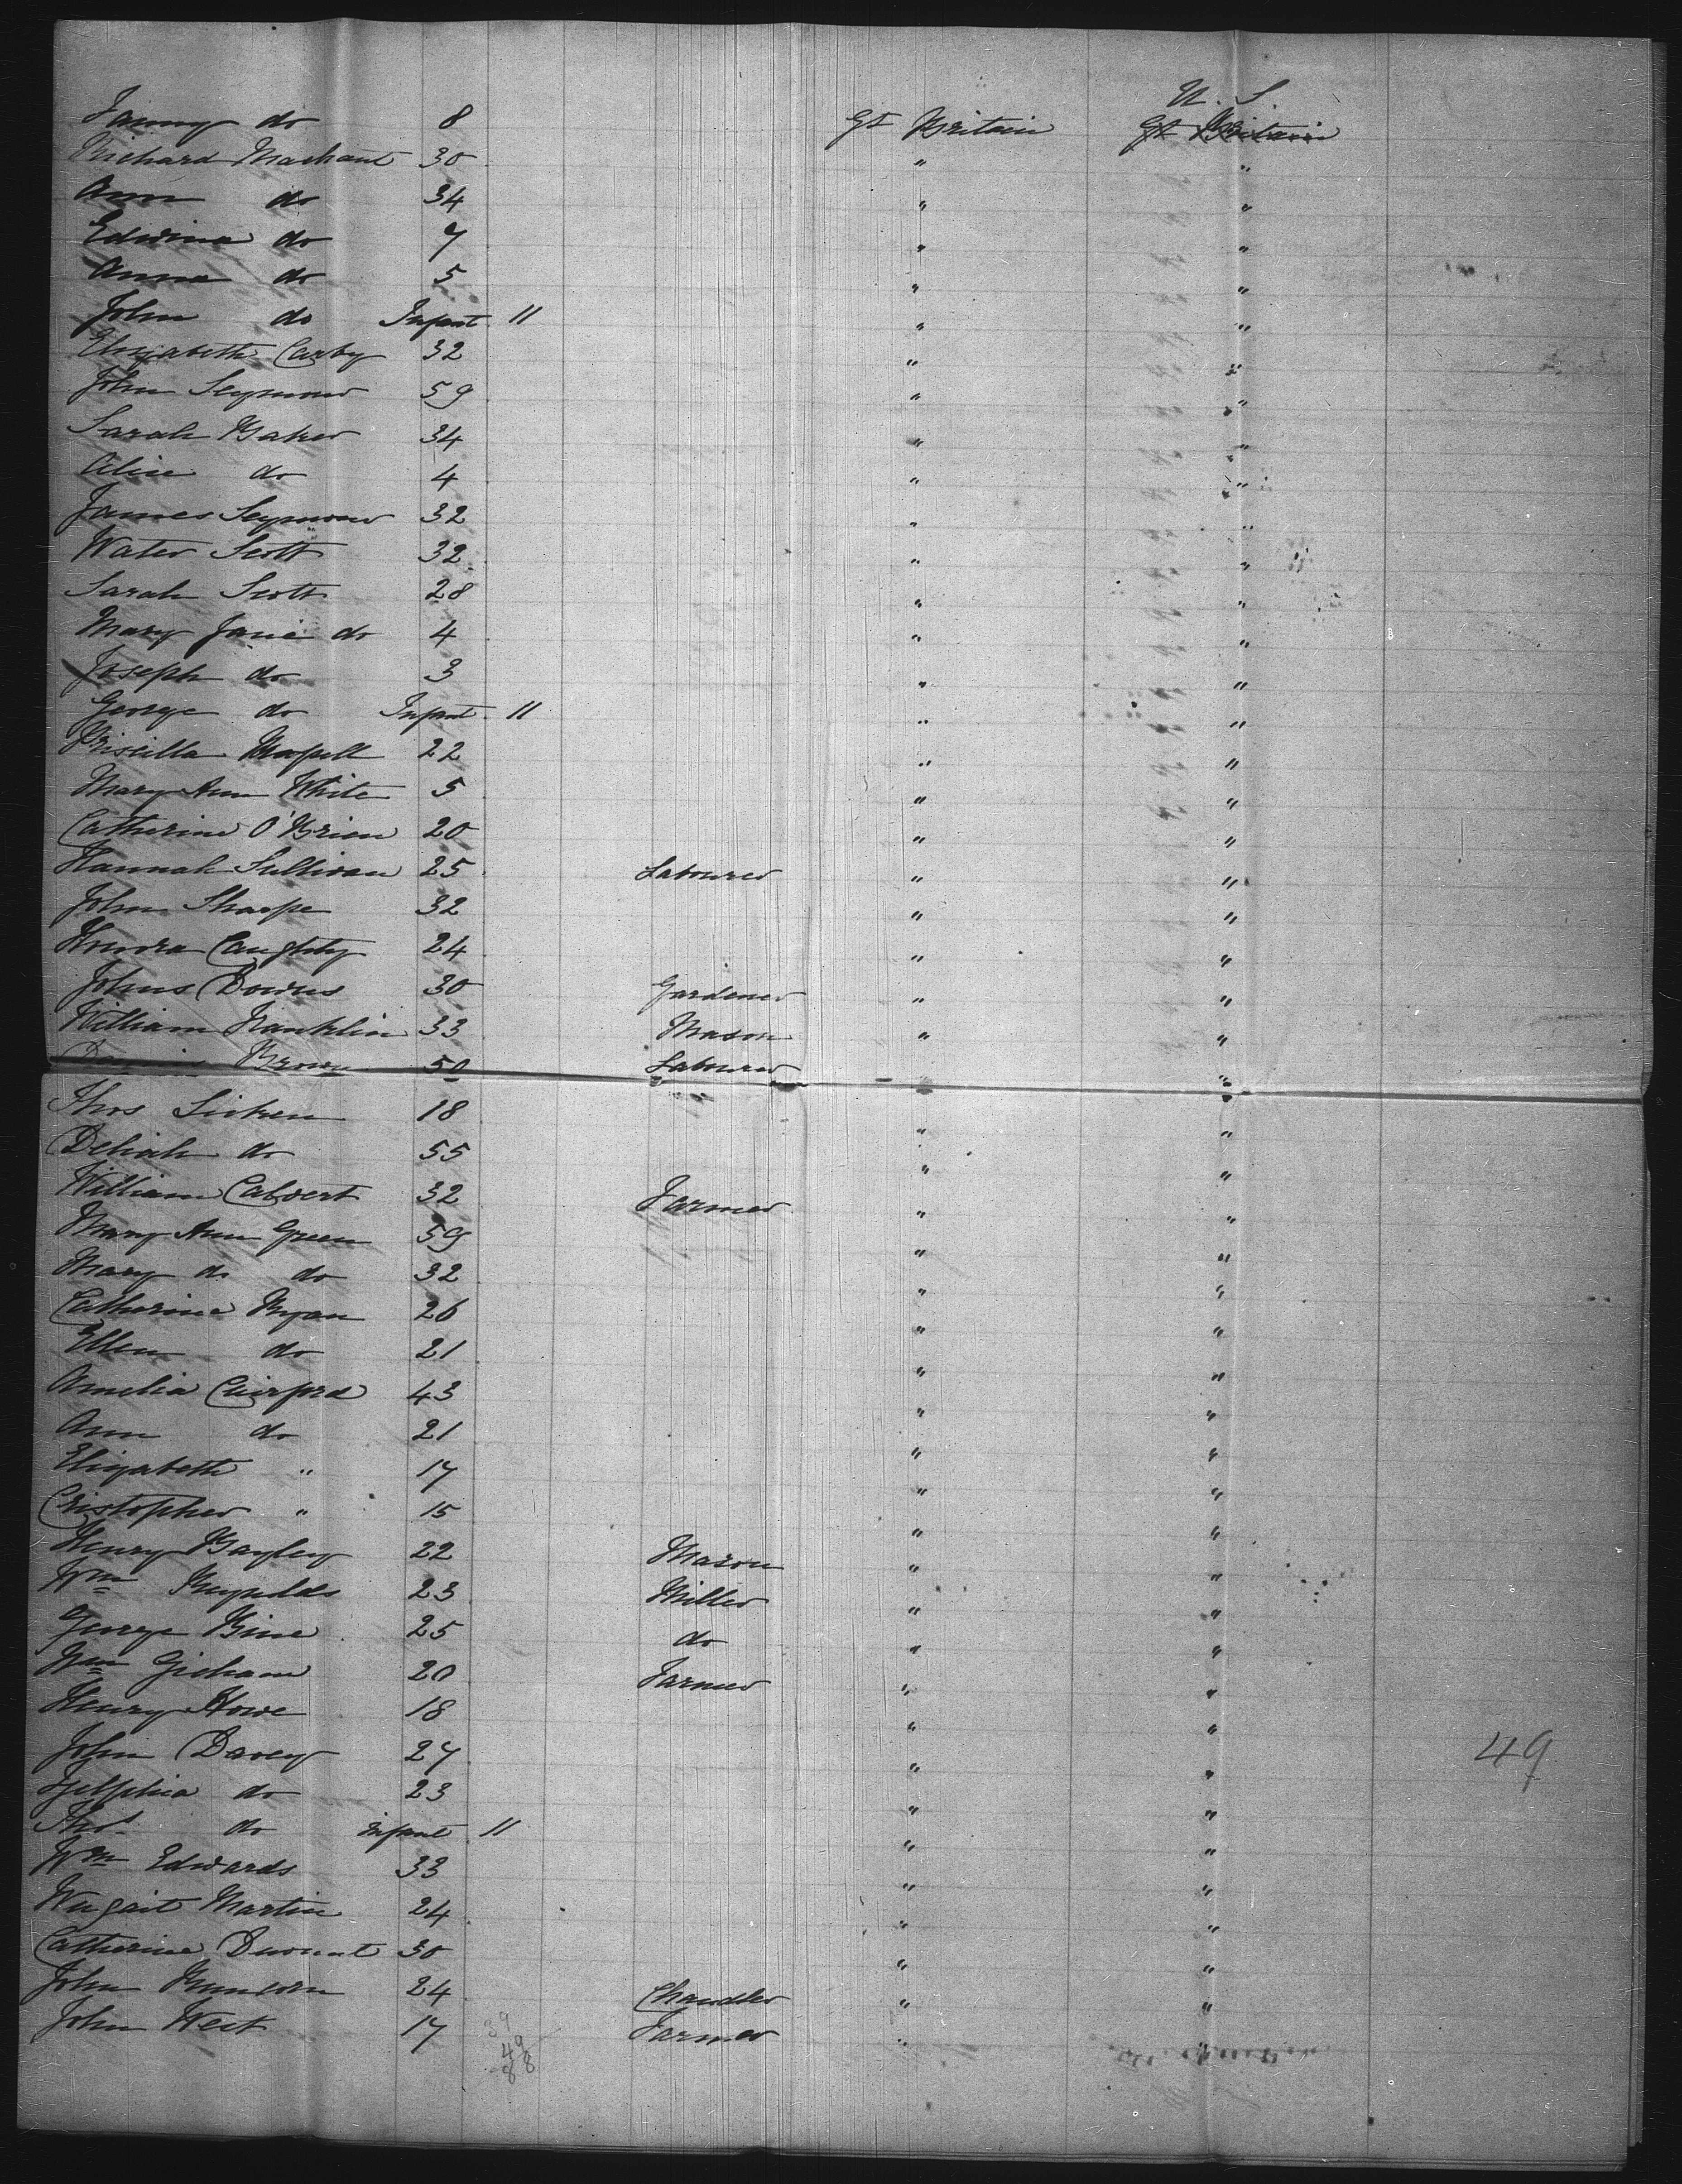 U. S
Fanny do 8 Gt Britain Gt Britain
Richard Machant 30 " "
Ann do 34 " "
Edwina do 7 " "
Anna do 5 " "
John do Infant 11 " "
Elizabeth Carby 32 " "
John Seymour 59 " "
Sarah Baker 34 " "
Alice do 4 " "
James Seymour 32 " "
Water Scott 32 " "
Sarah Scott 28 " "
Mary Jane do 4 " "
Joseph do 3 " "
George do Infant 11 " "
Priscilla 22 " "
Mary Ann White 5 " "
Catherine O'Brien 20 " "
Hannah Sullivan 25 Labourer " "
John Sharpe 32 " "
24 " "
Johns Downs 30 Gardener " "
William Hanklin 33 Mason " "
Brown 50 Labourer " "
Thos 18 " "
Deliah do 55 " "
William Calvert 32 Farmer " "
Mary Ann Green 59 " "
Mary do do 32 " "
Catherine Ryan 26 " "
Ellen do 21 " "
Amelia 43 " "
Ann do 21 " "
Elizabeth " 17 " "
Cristopher " 15 " "
Henry Bayley 22 Mason " "
Wm Reynolds 23 Miller " "
George Bine 25 do " "
Wm Gicham 20 Farmer " "
Henry Howe 18 " "
John Davey 27 " " 49
do 23 " "
Thos do infant 11 " "
Wm Edwards 33 " "
Martin 24 " "
Catherine 30 " "
John 24 Chandler " "
John West 17 Farmer " "
39
49
88